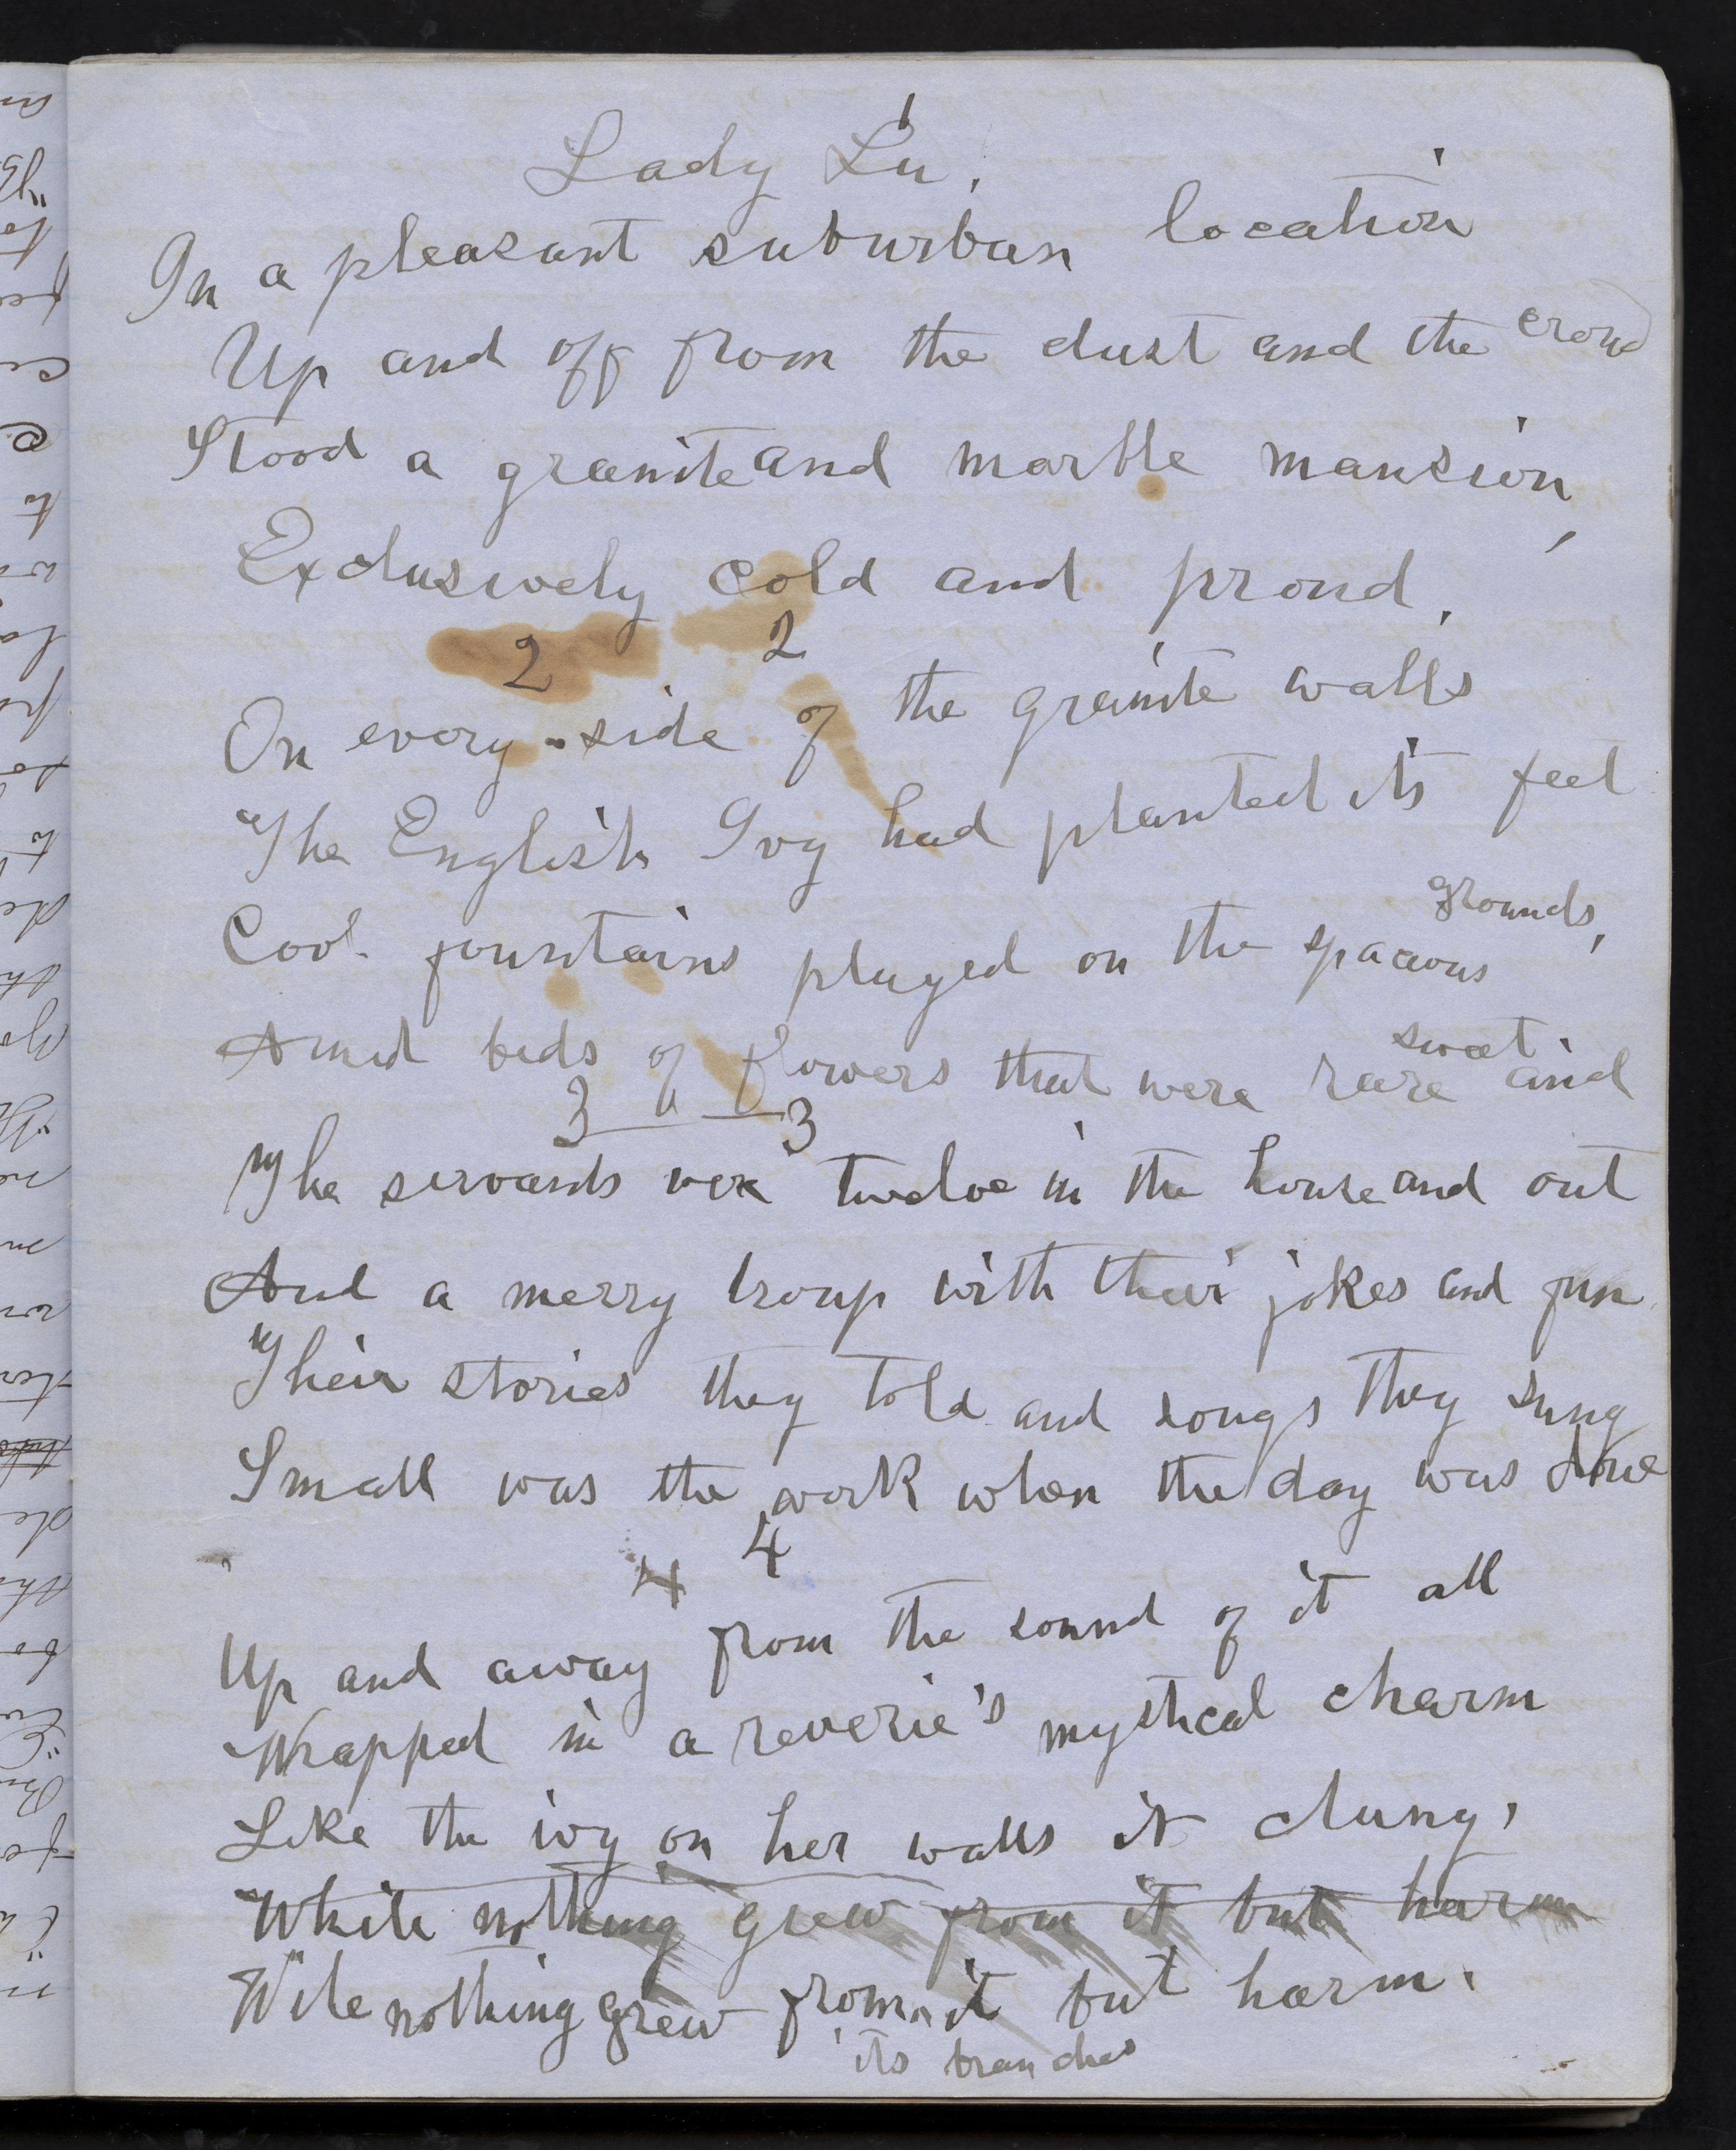 1
Lady Lu,
In a pleasant suburban location
Up and off from the dust and the crowd
Stood a granite and marble mansion,
Exclusively cold and proud.
2 2
On every side of the granite walls
The English Ivy had planted its feet
Cool fountains played on the spacious grounds,
Amid beds of flowers that were rare and sweet
3 3
The servants were twelve in the house and out
And a merry troup with their jokes and fun
Their stories they told and songs they sung
Small was the work when the day was done
4 4
Up and away from the sound of it all
Wrapped in a reverie's mystical charm
Like the ivy on her walls it clung,
While nothing grew from it but harm
Wile nothing grew from it but harm.
its branches